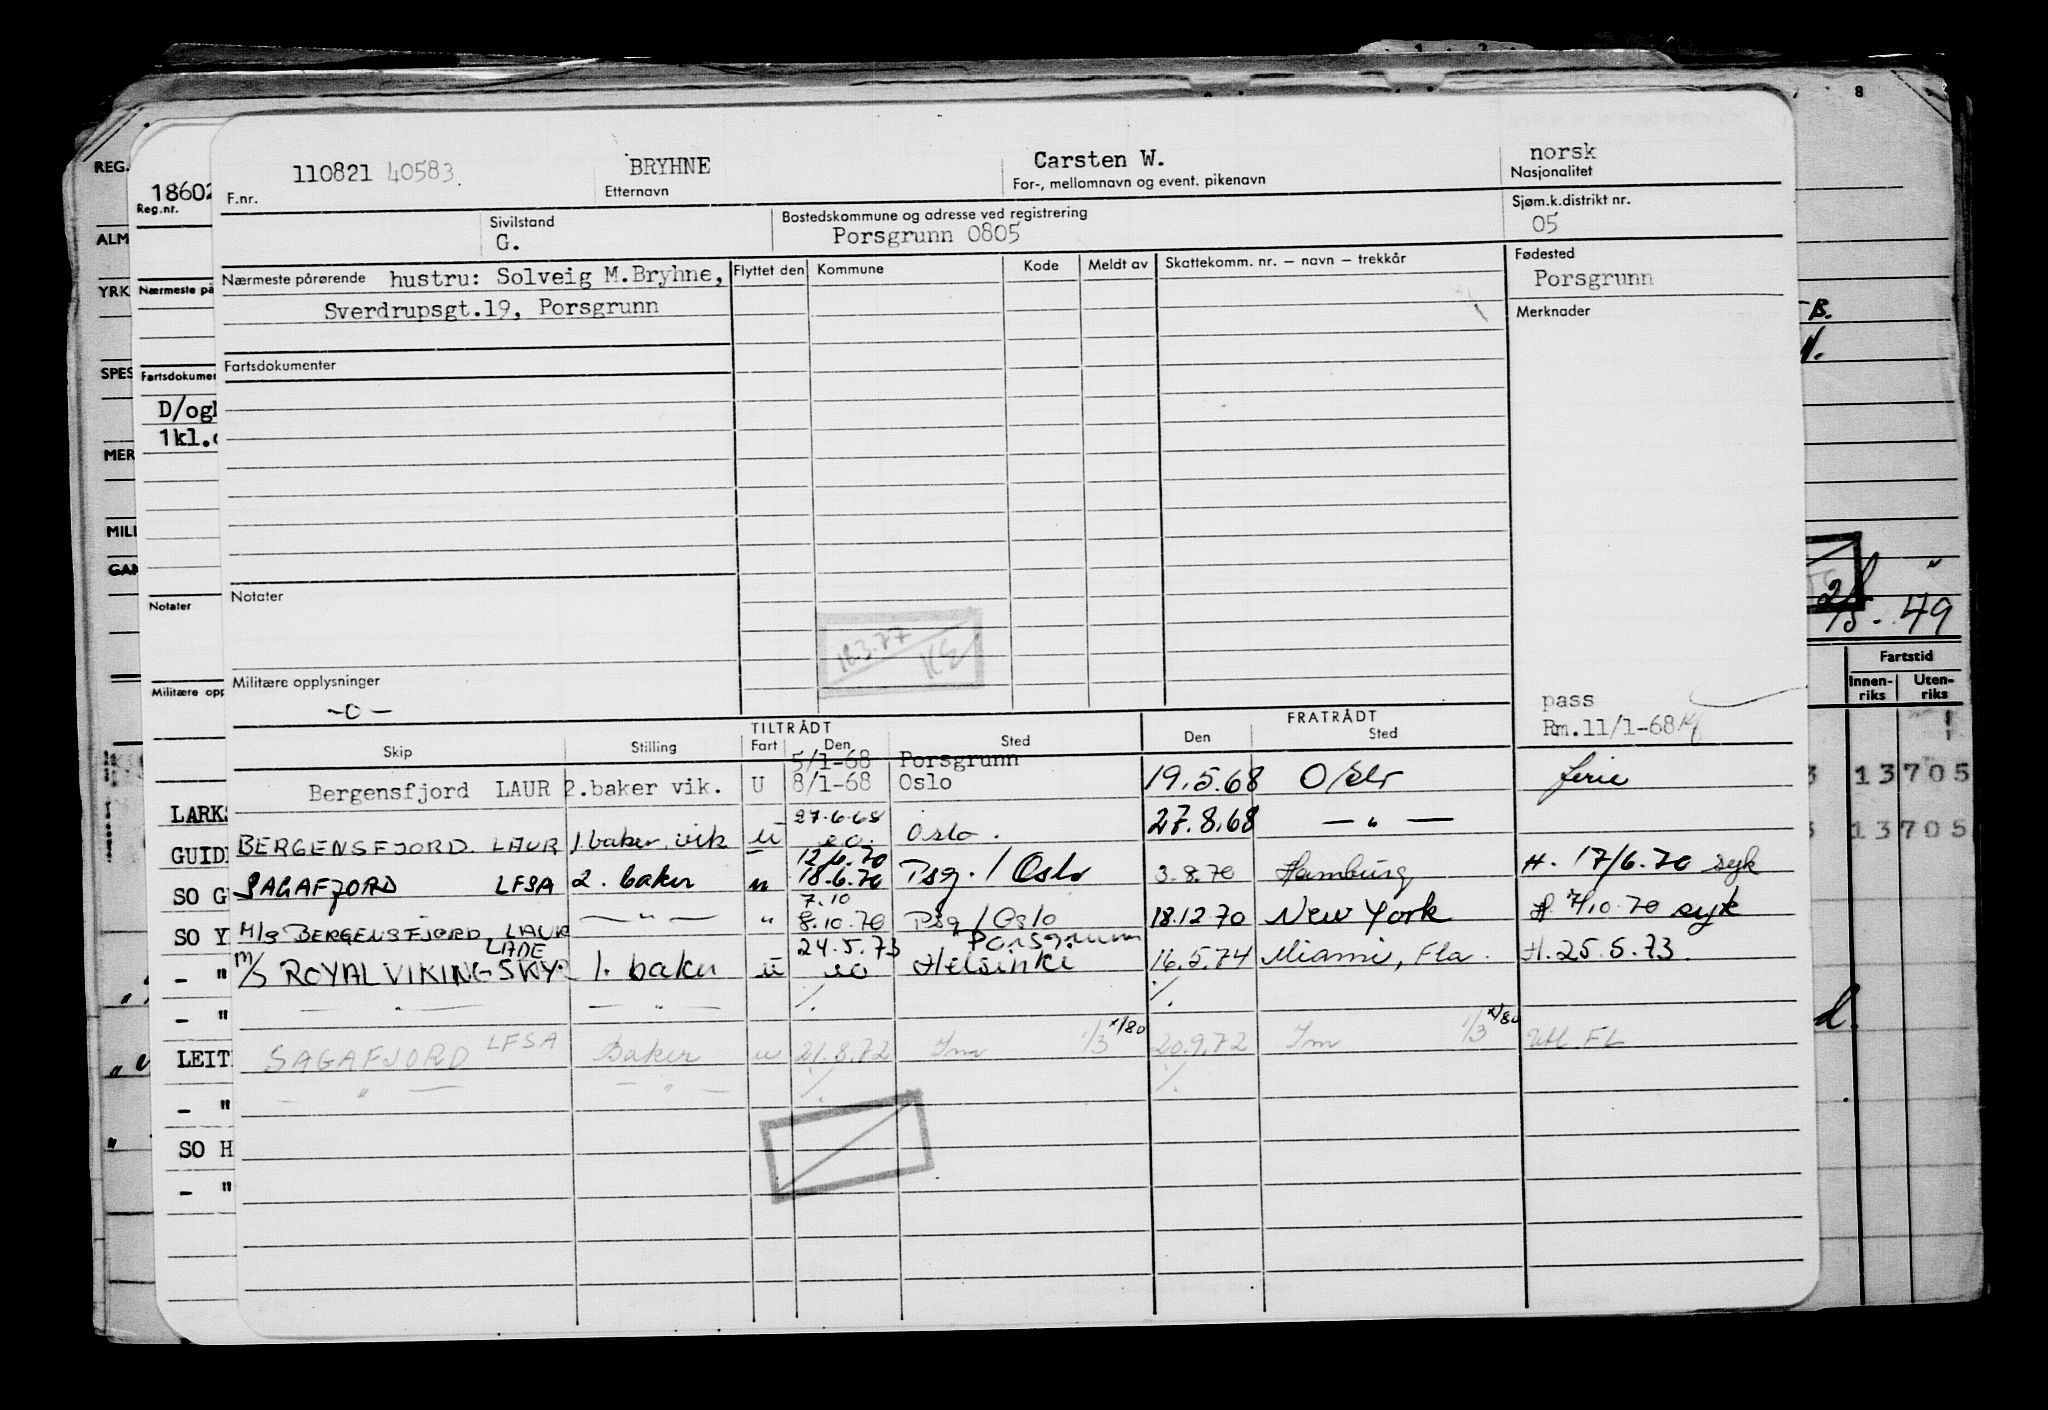 110821 40583 BRYHNE Carsten W. norsk
F.nr. Etternavn For-, mellomnavn og event. pikenavn Nasjonalitet
Sivilstand Bostedskommune og adresse ved registrering Sjøm.k.distrikt nr.
G. Porsgrunn 0805 05
Nærmeste pårørende hustru: Solveig M.Bryhne, Flyttet den Kommune Kode Meldt av Skattekomm. nr. — navn — trekkår Fødested
Sverdrupsgt.19, Porsgrunn Porsgrunn
Merknader
Fartsdokumenter
Notater
18.3.77
KE
Militære opplysninger
-o-
pass
Rm.11/1-68
TILTRÅDT FRATRÅDT
Skip Stilling Fart Den Sted Den Sted
5/1-68 Porsgrunn
Bergensfjord LAUR 2.baker vik. U 8/1-68 Oslo 19.5.68 Oslo ferie
27.6.68
BERGENSFJORD LAUR 1.baker vik u eo. Oslo. 27.8.68 — " —
12/6.70
SAGAFJORD LFSA 2. baker u 18.6.70 Psg. / Oslo 3.8.70 Hamburg H. 17/6.70 syk
7.10
M/S BERGENSFJORD LAUR — " — " 8.10.70 Psg / Oslo 18.12.70 New York H 7/10.70 syk
LADE 24.5.73 Porsgrunn
m/S ROYAL VIKING SKY 1. baker u eo Helsinki 16.5.74 Miami, Fla. H. 25.5.73
— " — — " — %. %.
SAGAFJORD LFSA Baker u 21.8.72 Im 1/3 x/80 20.9.72 Im 1/3 x/80 Utl. FL
— " — — " — %. %.
REG.
18602
Reg.nr.
ALM
YRK
Nærmeste på
SPES
Fartsdokumen
D/ogl
1kl.
MER
MILI
GAN
Notater
Militære opp
LARKS
GUID
SO G
SO Y
- "
- "
LEIT
- "
SO H
- "
8
B.
49
Fartstid
Innen-riks Uten-riks
13705
13705